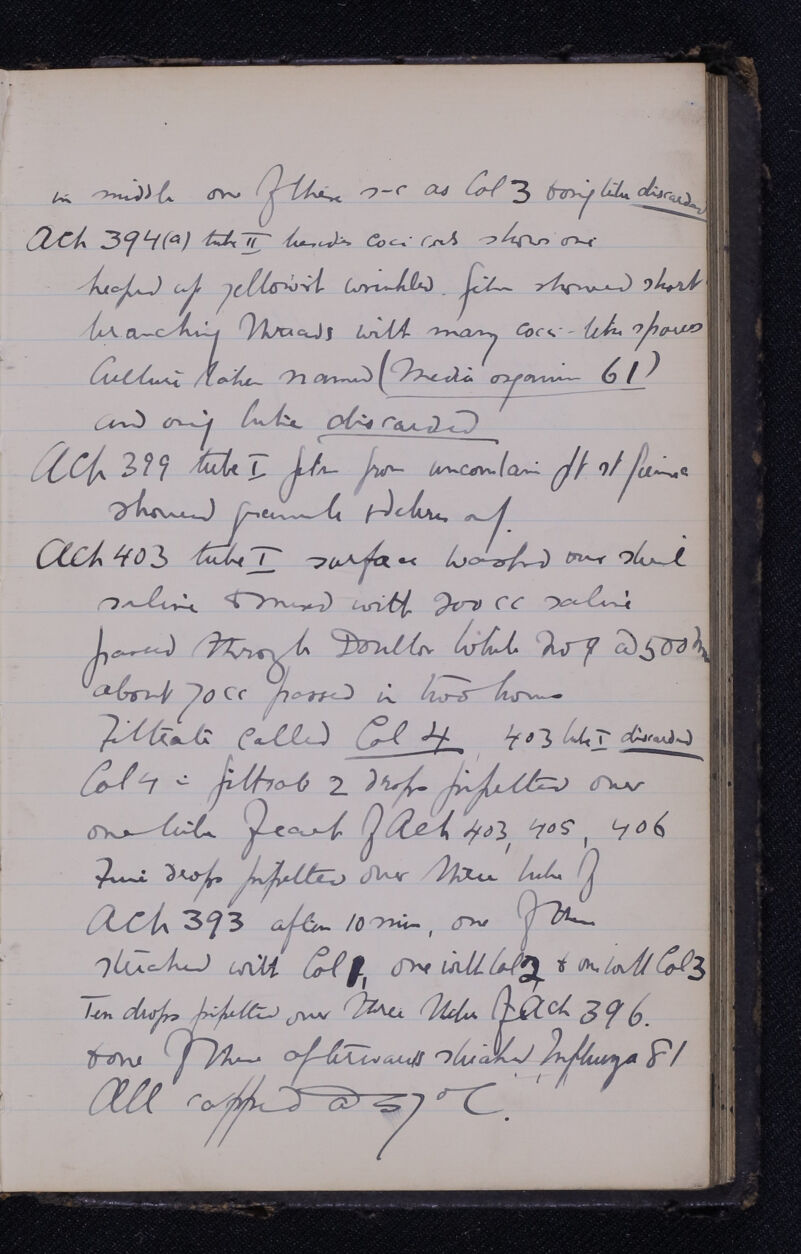 in middle one of these s-c as Col 3 & orig tube discarded
Ach 394(a) tube II besides cocci cols shows one
heaped up yellowish wrinkled. film showed short
branching threads with many cocci-like spores
Culture taken named (Media organism 61)
and orig tube discarded
Ach 399 tube I film from uncontam pt
showed granule & debris only.
Ach 403 tube I surface washed over sterile
saline & mixed with 200 cc saline
passed through Doulton White No 9 @ 500 mm
about 70 cc passed in two hours
Filtrate called Col 4, 403 tube I discarded
Col 4 = filtrate 2 drops pipetted over
one tube of each of Ach 403, 405, 406
Five drops pipetted over three tubes of
Ach 393 after 10 min, one of them
streaked with Col 1, one with Col 2 & one with Col 3
Ten drops pipetted over three tubes of Ach 396.
& one of them afterwards streaked Influenza 81
All capped @ 37°C.